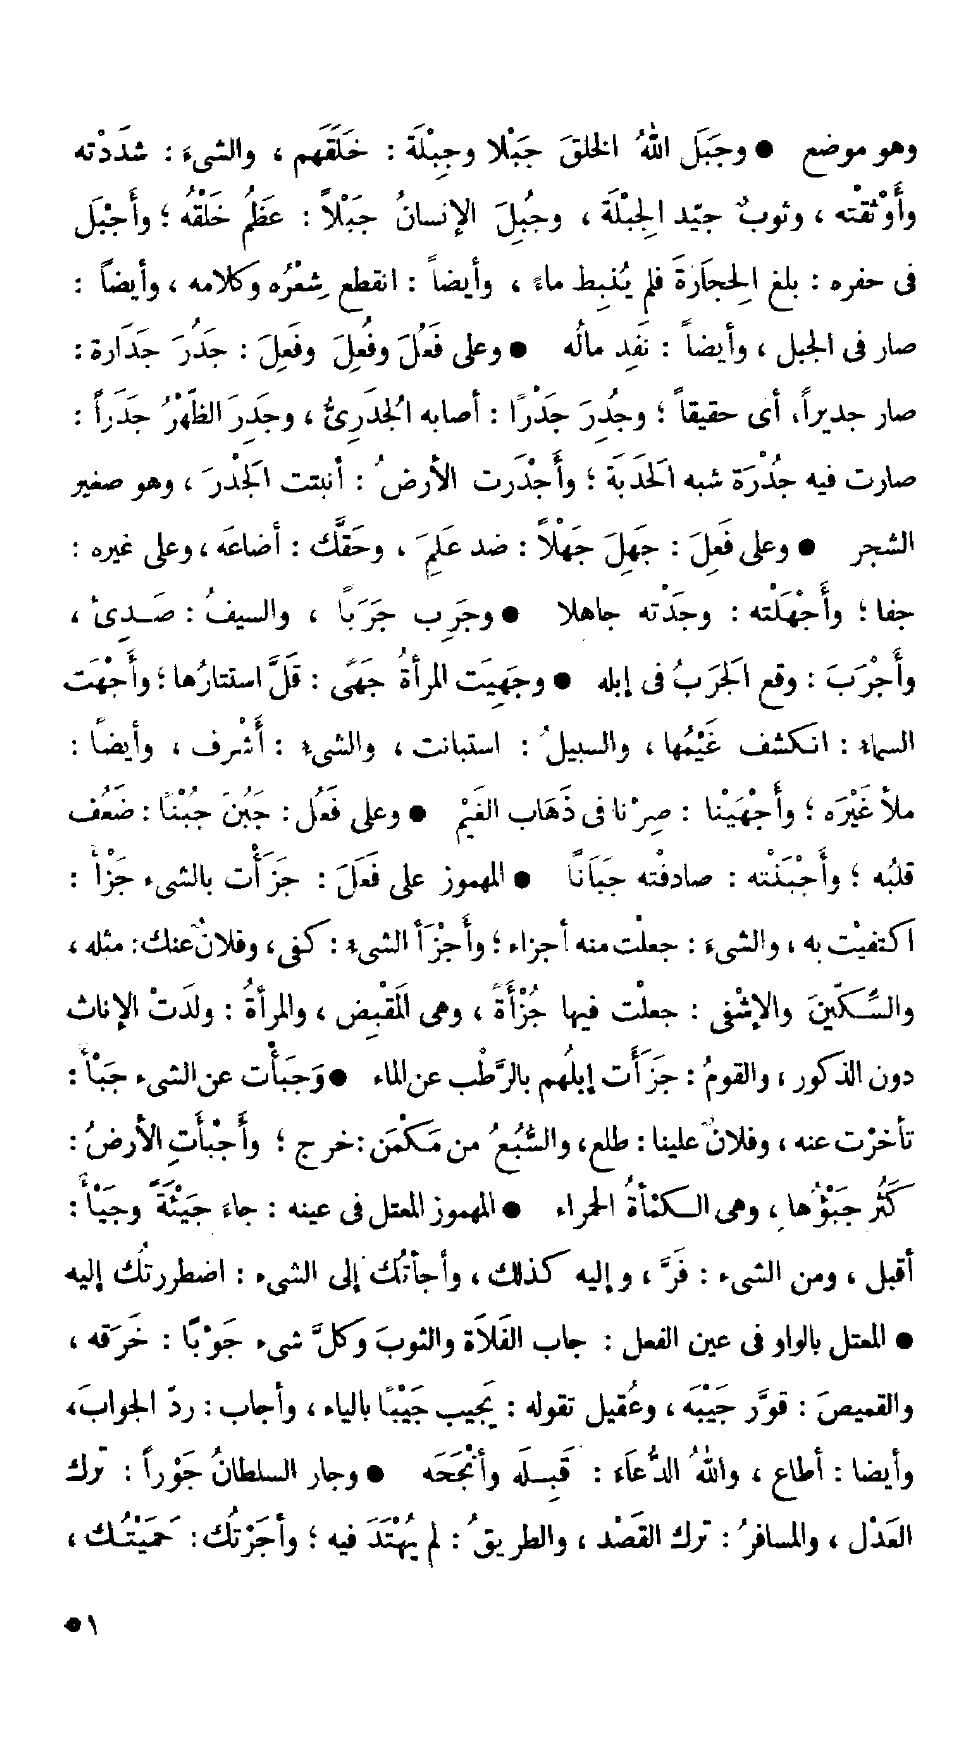 وهو موضع ● وجَبَلَ اللهُ الخلقَ جَبْلا وجِبِلَّة : خَلَقَهم ، والشىءَ : شدَدْته
وأَوْثقْته ، وثوبٌ جيّد الجِبْلَة ، وجُبِلَ الإنسانُ جَبْلاً : عَظُم خَلْقُه ؛ وأَجْبَلَ
فى حفره : بلغ الحِجَارَةَ فلم يُنْبِط ماءً ، وأيضاً : انقطع شِعْرُه وكلامه ، وأيضاً :
صار فى الجبل ، وأيضاً : نَفِد مالُه ● وعلى فَعُلَ وفُعِلَ وفَعِلَ : جَدُرَ جَدَارة :
صار جديراً، أى حقيقاً ؛ وجُدِرَ جَدْرًا : أصابه الجُدَرِىُّ ، وجَدِرَ الظّهْرُ جَدَراً :
صارت فيه جُدْرَة شبه الحَدَبَة ؛ وأَجْدَرت الأرضُ : أنبتت الجَدْرَ ، وهو صغير
الشجر ● وعلى فَعِلَ : جَهِلَ جَهْلاً : ضد عَلِمَ ، وحَقَّك : أضاعَه ، وعلى غيره :
جفا ؛ وأَجْهَلْته : وجَدْته جاهلا ● وجَرِب جَرَبًا ، والسيفُ : صَدِئ ،
وأَجْرَبَ : وقع الجَرَبُ فى إبله ● وجَهِيَت المرأةُ جَهًى : قَلَّ استتارُها ؛ وأَجْهَت
السماءُ : انكشف غَيْمُها ، والسبيلُ : استبانت ، والشىءُ : أَشْرف ، وأيضًا :
ملأ غَيْرَه ؛ وأَجْهَيْنا : صِرْنا فى ذَهَاب الغَيْم ● وعلى فَعُل : جَبُنَ جُبْنًا : ضَعُف
قلبُه ؛ وأَجْبَنْته : صادفْته جَبَانًا ● المهموز على فَعَلَ : جَزَأْت بالشىء جَزْأ :
اكتفيْت به ، والشىءَ : جعلْت منه أجزاء ؛ وأَجْزَأ الشىءُ : كفى، وفلانٌ عنك : مثله ،
والسِّكّينَ والإشْفى : جعلْت فيها جُزْأَةً ، وهى المَقْبِض ، والمرأةُ : ولدَتْ الإناث
دون الذكور ، والقومُ : جَزَأَت إبلُهم بالرَّطْب عن الماء ● وَجَبَأْت عن الشىء جَبْأ :
تأخرْت عنه ، وفلانٌ علينا : طلع، والسَّبُعُ من مَكْمَن : خرج ؛ وأَجْبَأَتِ الأرضُ :
كَثُر جَبْؤُها ، وهى الكَمْأةُ الحمراء ● المهموز المعتل فى عينه : جاءَ جَيْئَةً وجَيْأ :
أقبل ، ومن الشىء : فَرَّ ، وإليه كذلك ، وأجأتُك إلى الشىء : اضطررتك إليه
● المعتل بالواو فى عين الفعل : جاب الفَلَاة والثوبَ وكلَّ شىء جَوْبًا : خَرَقه ،
والقميصَ : قوَّر جَيْبَه ، وعُقيل تقوله : يَجيب جَيْبًا بالياء ، وأجاب : ردّ الجوابَ ،
وأيضا : أطاع ، واللهُ الدُّعاءَ : قَبِلَه وأنْجَحَه ● وجار السلطانُ جَوْراً : ترك
العَدْل ، والمسافرُ : ترك القَصْد ، والطريقُ : لم يُهْتَدَ فيه ؛ وأجَرْتُك : حَمَيْتُك ،
٥١